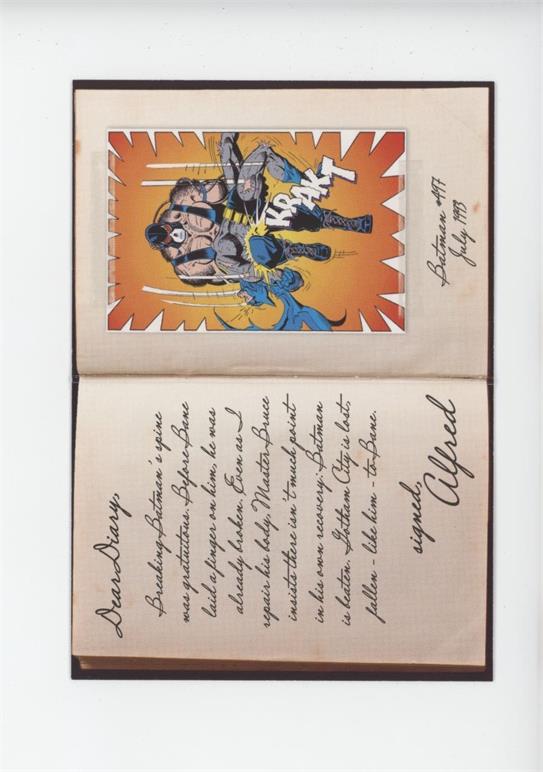 Dear Diary,
Breaking Batman's spine
was gratuitous. Before Bane
laid a finger on him, he was
already broken. Even as I
repair his body, Master Bruce
insists there isn't much point
in his own recovery; Batman
is beaten. Gotham City is lost,
fallen - like him - to Bane.
signed,
Alfred
KRAKT
Batman #497
July 1993